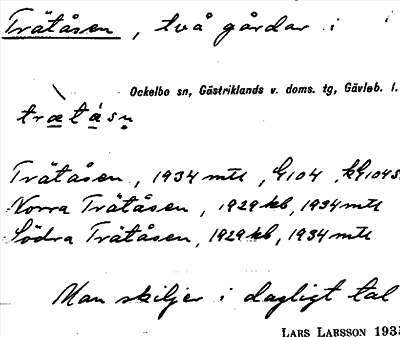 Trätåsen, två gårdar i
Ockelbo sn, Gästriklands v. doms. tg, Gävleb. l.
trätåsn
Trätåsen, 1934 mtl, G104
Norra Trätåsen, 1929 kb, 1934 mtl
Södra Trätåsen, 1929 kb, 1934 mtl
Man skiljer i dagligt tal
LARS LARSSON 1935